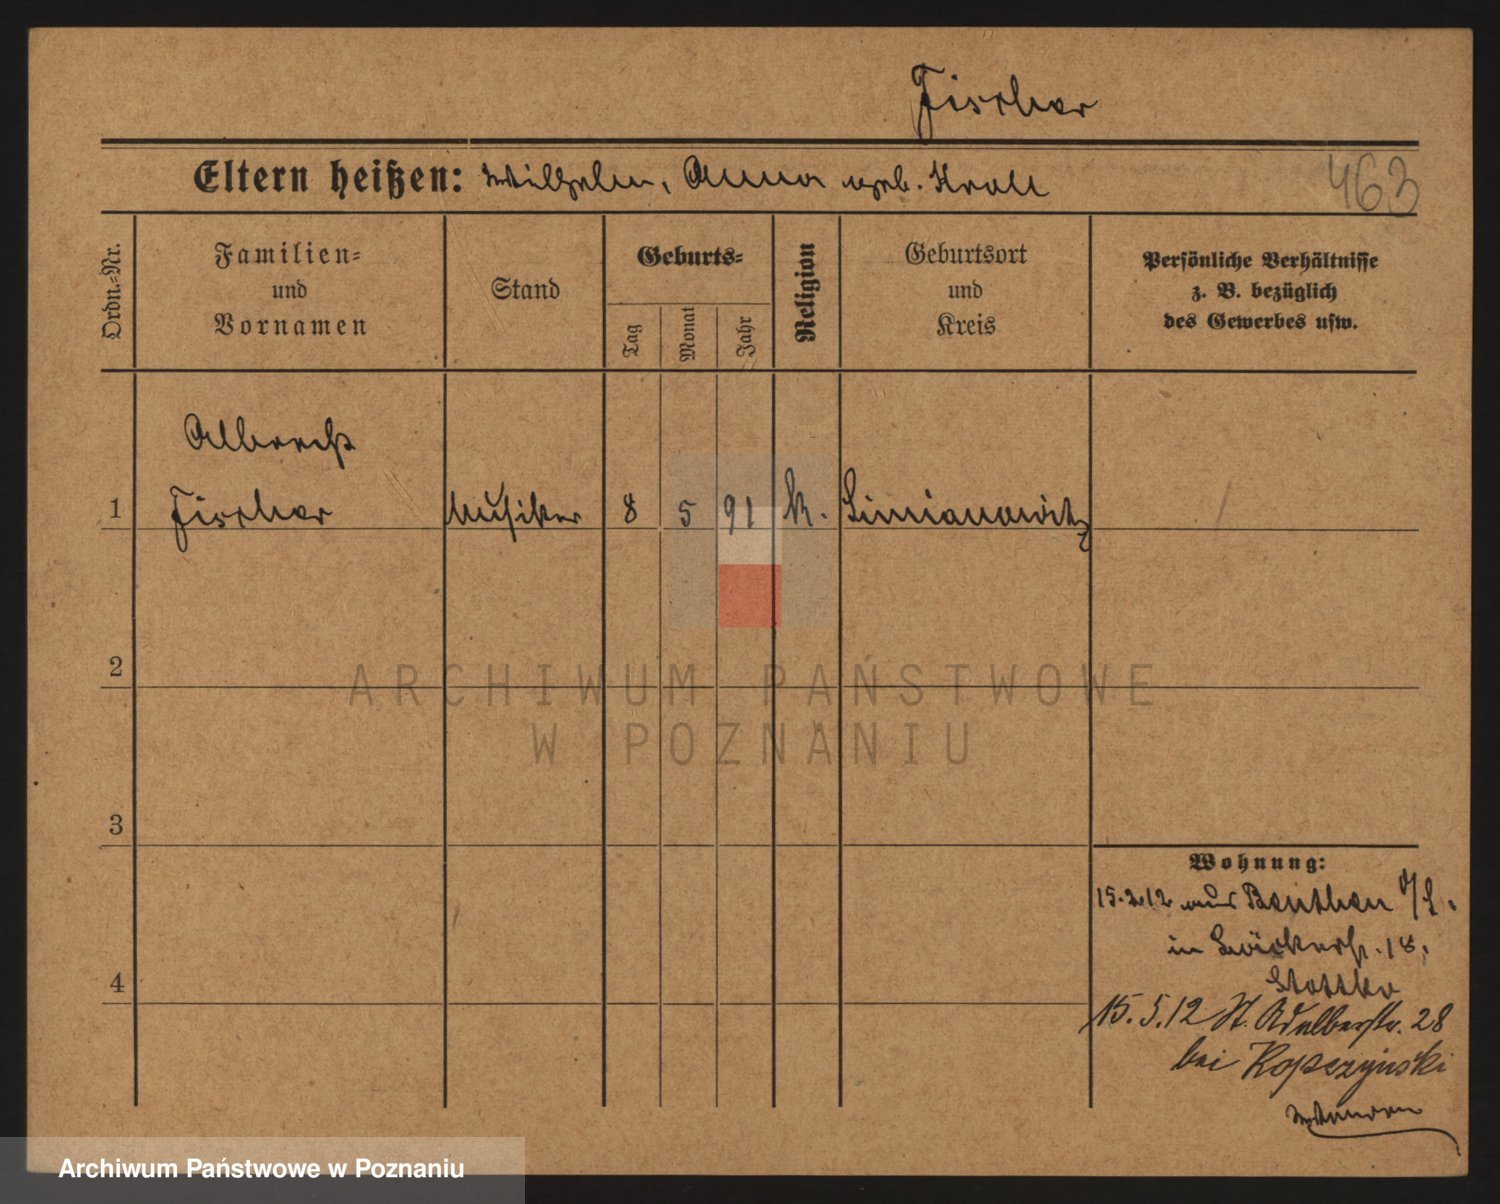 Fischer
Eltern heißen: Wilhelm, Anna geb. Kroll
463
Ordn.-Nr.
Familien-
und
Vornamen
Stand
Geburts-
Tag
Monat
Jahr
Religion
Geburtsort
und
Kreis
Persönliche Verhältnisse
z. B. bezüglich
des Gewerbes usw.
Albrecht
1 Fischer Musiker 8 5 91 k. Simianowitz
2
ARCHIWUM PAŃSTWOWE
W POZNANIU
3
Wohnung:
15.2.12 aus Beuthen O/S.
in Bäckerstr. 18,
15.5.12 St. Adalbertstr. 28
bei Kopczynski
4
Archiwum Państwowe w Poznaniu